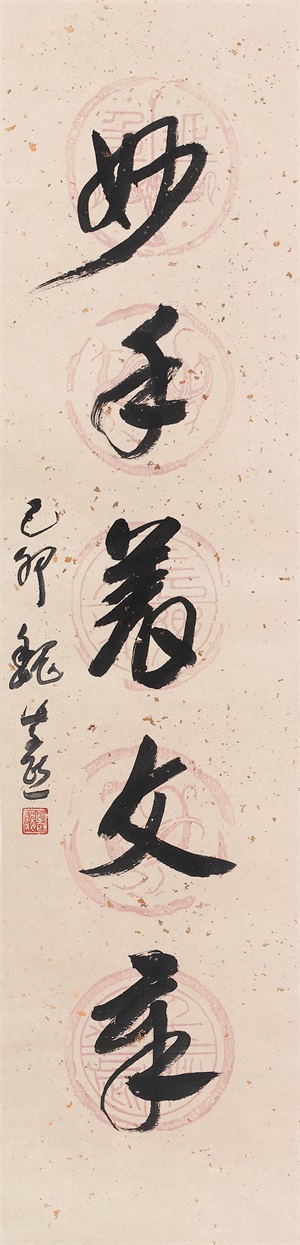 妙手著文章
己卯 魏